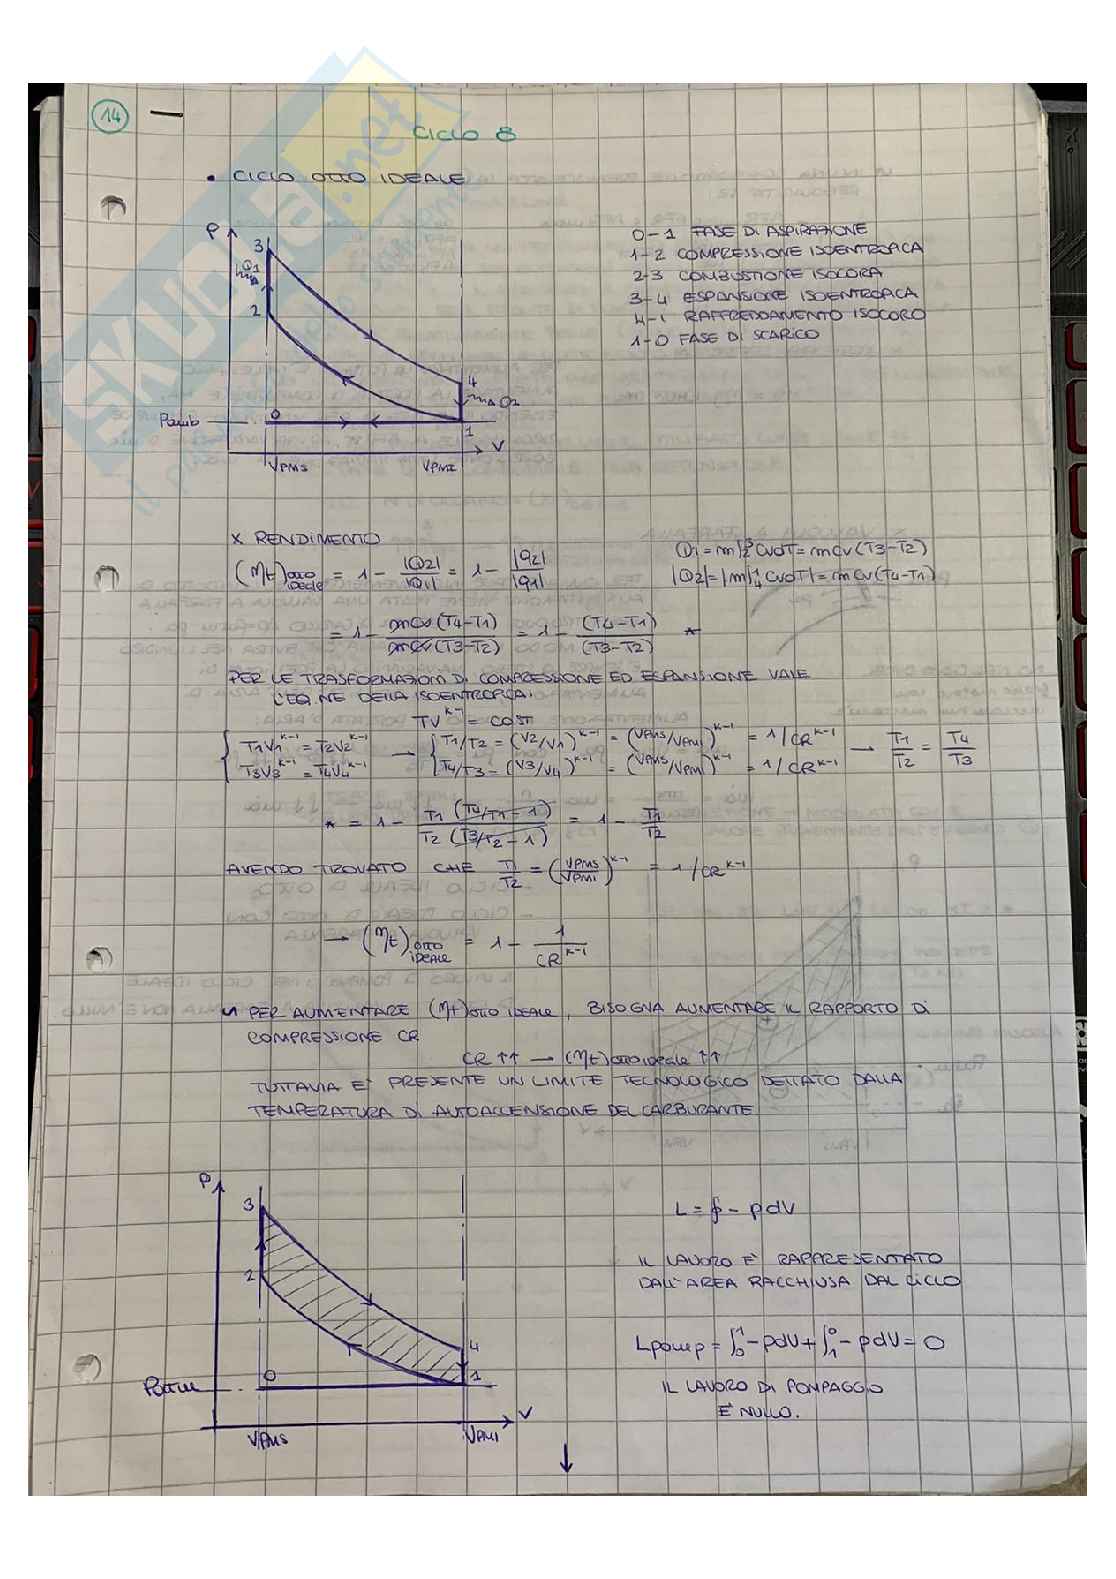 14
CICLO 8
• CICLO OTTO IDEALE
P
3
Q1
2
4
Q2
Pamb
0
1
V
VPMS
VPMI
0-1 FASE DI ASPIRAZIONE
1-2 COMPRESSIONE ISOENTROPICA
2-3 COMBUSTIONE ISOCORA
3-4 ESPANSIONE ISOENTROPICA
4-1 RAFFREDDAMENTO ISOCORO
1-0 FASE DI SCARICO
x RENDIMENTO
(ηt)OTTO IDEALE = 1 - |Q2|/|Q1| = 1 - |q2|/|q1|
Q1 = m∫₂³ CvdT = mCv(T3-T2)
|Q2| = |m∫₄¹ CvdT| = mCv(T4-T1)
= 1 - mCv(T4-T1)/mCv(T3-T2) = 1 - (T4-T1)/(T3-T2) *
PER LE TRASFORMAZIONI DI COMPRESSIONE ED ESPANSIONE VALE
L'EQ.NE DELLA ISOENTROPICA:
TV^K-1 = COST
{ T1V1^K-1 = T2V2^K-1 → { T1/T2 = (V2/V1)^K-1 = (VPMS/VPMI)^K-1 = 1/CR^K-1 → T1/T2 = T4/T3
T3V3^K-1 = T4V4^K-1 T4/T3 = (V3/V4)^K-1 = (VPMS/VPMI)^K-1 = 1/CR^K-1
* = 1 - T1(T4/T1-1)/T2(T3/T2-1) = 1 - T1/T2
AVENDO TROVATO CHE T1/T2 = (VPMS/VPMI)^K-1 = 1/CR^K-1
→ (ηt)OTTO IDEALE = 1 - 1/CR^K-1
PER AUMENTARE (ηt)OTTO IDEALE, BISOGNA AUMENTARE IL RAPPORTO DI
COMPRESSIONE CR
CR ↑↑ → (ηt)OTTO IDEALE ↑↑
TUTTAVIA E' PRESENTE UN LIMITE TECNOLOGICO DETTATO DALLA
TEMPERATURA DI AUTOACCENSIONE DEL CARBURANTE
P
3
2
4
0
1
Patm
V
VPMS
VPMI
L = ∮ - pdV
IL LAVORO E' RAPPRESENTATO
DALL'AREA RACCHIUSA DAL CICLO
Lpomp = ∫₀¹ - pdV + ∫₁⁰ - pdV = 0
IL LAVORO DI POMPAGGIO
E' NULLO.
SKUOLA.net